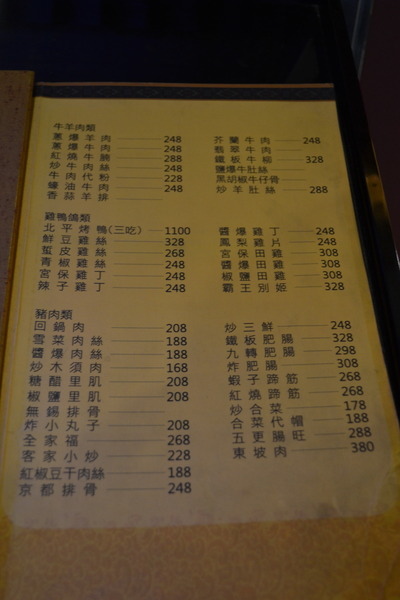 牛羊肉類
蔥爆羊肉 248
蔥爆牛肉 248
紅燒牛腩 288
炒牛肉絲 248
牛肉代粉 228
蠔油牛肉 248
香蒜羊排
芥蘭牛肉 248
翡翠牛肉
鐵板牛柳 328
鹽爆牛肚絲
黑胡椒牛仔骨
炒羊肚絲 288
雞鴨鴿類
北平烤鴨(三吃) 1100
鮮豆雞絲 328
蜇皮雞絲 268
青椒雞絲 248
宮保雞丁 248
辣子雞丁 248
醬爆雞丁 248
鳳梨雞片 248
宮保田雞 308
醬爆田雞 308
椒鹽田雞 308
霸王別姬 328
豬肉類
回鍋肉 208
雪菜肉絲 188
醬爆肉絲 188
炒木須肉 168
糖醋里肌 208
椒鹽里肌 208
無錫排骨
炸小丸子 208
全家福 268
客家小炒 228
紅椒豆干肉絲 188
京都排骨 248
炒三鮮 248
鐵板肥腸 328
九轉肥腸 298
炸肥腸 308
蝦子蹄筋 268
紅燒蹄筋 268
炒合菜 178
合菜代帽 188
五更腸旺 288
東坡肉 380